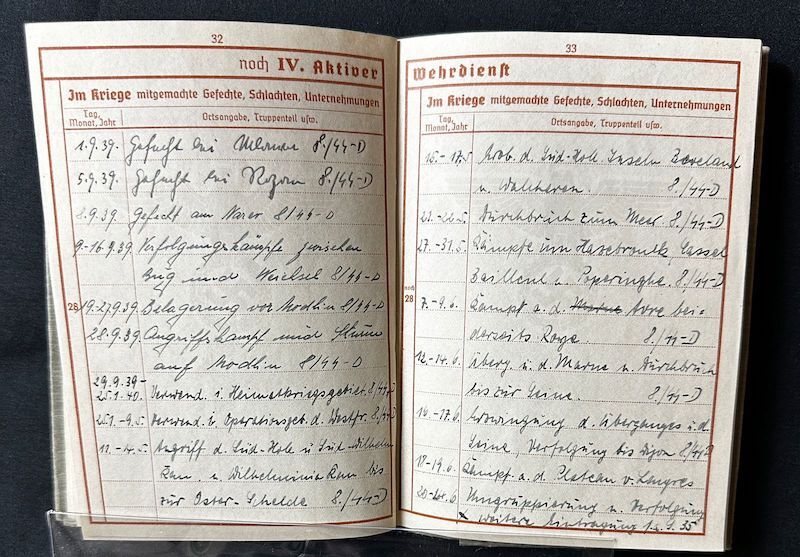 32
noch IV. Aktiver
Im Kriege mitgemachte Gefechte, Schlachten, Unternehmungen
Tag, Monat, Jahr
Ortsangabe, Truppenteil usw.
1.9.39. Gefecht bei Mlawa 8./44-D
5.9.39. Gefecht bei Rozan 8./44-D
8.9.39. Gefecht am Narew 8/44-D
9.-16.9.39. Verfolgungskämpfe zwischen
Bug und Weichsel 8/44-D
28
19.-27.9.39. Belagerung vor Modlin 8/44-D
28.9.39. Angriffskampf und Sturm
auf Modlin 8/44-D
29.9.39-
25.1.40. Verwend. i. Heimatkriegsgebiet. 8./44-D
25.1.-9.5. Verwend. i. Operationsgeb. d. Westfr. 8/44-D
11.-14.5. Angriff d. Süd-Holl. u Süd-Wilhelm
u. Wilhelmina Kan. bis
zur Oster-Schelde 8./44-D
33
Wehrdienst
Im Kriege mitgemachte Gefechte, Schlachten, Unternehmungen
Tag, Monat, Jahr
Ortsangabe, Truppenteil usw.
15.-17.5. Erob. d. Süd-Holl. Inseln Beveland
u. Walcheren. 8./44-D
Durchbruch zum Meer. 8./44-D
27.-31.5. Kämpfe um Hazebrouck Cassel
Bailleul u. Poperinghe. 8/44-D
noch 28
7.-9.6. Kampf a. d. Marne Avre bei-
derseits Roye. 8./44-D
12.-14.6. Überg. ü. d. Marne u. Durchbruch
bis zur Seine. 8./44-D
16.-17.6. Erzwingung d. Überganges ü. d.
Seine. Verfolgung bis Dijon 8/44D
18-19.6. Kämpf. a. d. Plateau v. Langres
20-24.6. Umgruppierung u. Verfolgung
x weitere Eintragung s. S. 35